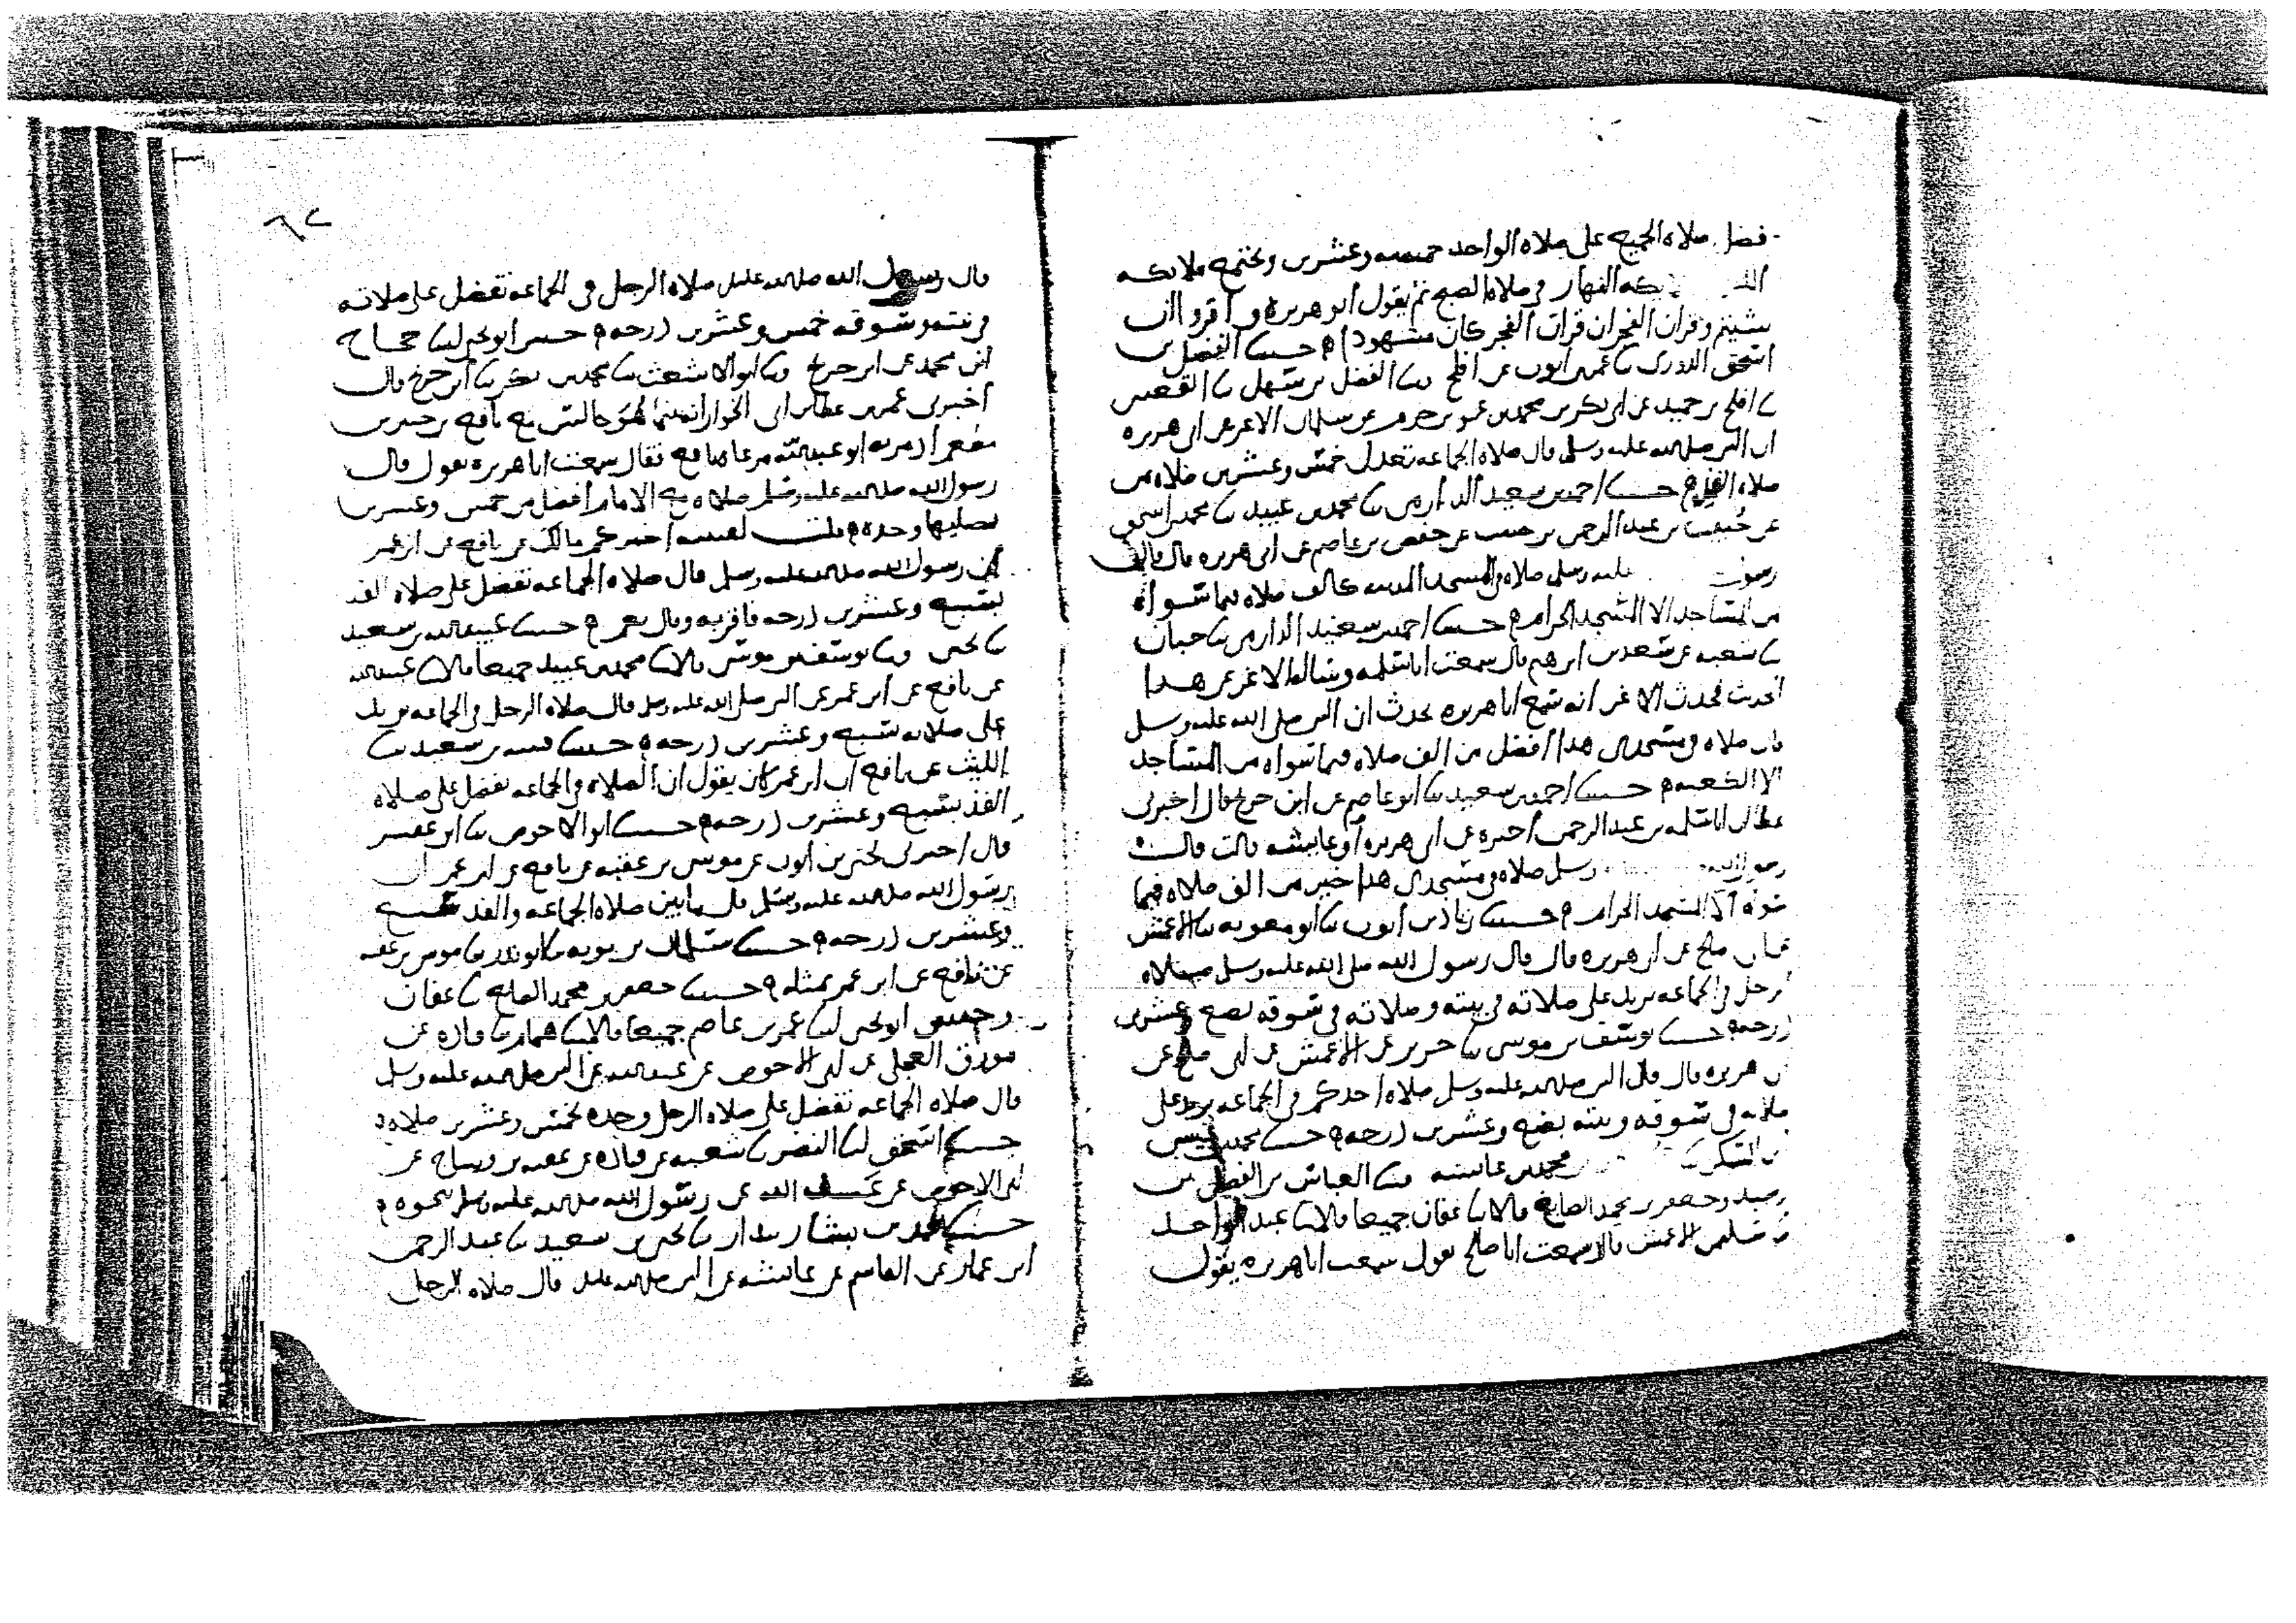 فضل صلاه الجميع على صلاه الواحد خمسه وعشرين وتجتمع ملائكه
النهار في صلاه الصبح ثم يقول ابو هريره واقروا ان
شيتم وقران الفجر ان قران الفجر كان مشهودا حدثنا الفضل بن
اسحق الدورى نا عمر بن ايوب عن افلح ونا الفضل بن سهل نا القعنبى
نا افلح بن حميد عن ابى بكر بن محمد بن عمرو بن حزم عن سلمان الاغر عن ابى هريره
ان النبى صلى الله عليه وسلم قال صلاه الجماعه تعدل خمس وعشرين صلاه من
صلاه الفذ حدثنا احمد بن سعيد الدارمى نا محمد بن عبيد نا محمد بن اسحق
عن خبيب بن عبد الرحمن بن خبيب عن حفص بن عاصم عن ابى هريره قال قال
رسول عليه وسلم صلاه فى المسجد المدينه كالف صلاه فيما سواه
من المساجد الا المسجد الحرام حدثنا احمد بن سعيد الدارمى نا حبان
نا شعبه عن سعد بن ابرهيم قال سمعت ابا سلمه وساله الاغر عن هذا
الحديث فحدث الاغر انه سمع ابا هريره يحدث ان النبى صلى الله عليه وسلم
قال صلاه فى مسجدى هذا افضل من الف صلاه فيما سواه من المساجد
الا الكعبه حدثنا احمد بن سعيد نا ابو عاصم عن ابن جريج قال اخبرنى
عطا ان ابا سلمه بن عبد الرحمن اخبره عن ابى هريره او عايشه قالت قال
رسول الله وسلم صلاه فى مسجدى هذا خير من الف صلاه فيما
سواه الا المسجد الحرام حدثنا زياد بن ايوب نا ابو معويه نا الاعمش
عن ابى صالح عن ابى هريره قال قال رسول الله صلى الله عليه وسلم صلاه
الرجل فى الجماعه تزيد على صلاته فى بيته وصلاته فى سوقه بضع وعشرين
درجه حدثنا يوسف بن موسى نا جرير عن الاعمش عن ابى صالح عن
ابى هريره قال قال النبى صلى الله عليه وسلم صلاه احدكم فى الجماعه تزيد على
صلاته فى سوقه وبيته بضع وعشرين درجه حدثنا محمد بن عيسى
بن السكن محمد بن عايشه ونا العباس بن الفضل بن
رشيد وجعفر بن محمد الصايغ قالا نا عفان جميعا قالا نا عبد الواحد
نا سليمن الاعمش قال سمعت ابا صالح يقول سمعت ابا هريره يقول
٦٢
قال رسول الله صلى الله عليه صلاه الرجل فى الجماعه تفضل على صلاته
فى بيته وسوقه خمس وعشرين درجه حدثنى ابو يحيى انا حجاج
ابن محمد عن ابن جريج ونا ابو الاشعث نا محمد بن بكر نا ابن جريج قال
اخبرنى عمر بن عطا بن ابى الخوار انه بينما هو جالس مع نافع بن جبير بن
مطعم اذ مر به ابو عبد الله فدعاه نافع فقال سمعت ابا هريره يقول قال
رسول الله صلى الله عليه وسلم صلاه مع الامام افضل من خمس وعشرين
يصليها وحده قلت لقتيبه اخبركم مالك عن نافع عن ابن عمر
ان رسول الله صلى الله عليه وسلم قال صلاه الجماعه تفضل على صلاه الفذ
بسبع وعشرين درجه فاقر به وقال نعم حدثنا عبيد الله بن سعيد
نا يحيى ونا يوسف بن موسى قالا نا محمد بن عبيد جميعا قالا نا عبيد الله
عن نافع عن ابن عمر عن النبى صلى الله عليه وسلم قال صلاه الرجل فى الجماعه تزيد
على صلاته سبع وعشرين درجه حدثنا قتيبه بن سعيد نا
الليث عن نافع ان ابن عمر كان يقول ان الصلاه فى الجماعه تفضل على صلاه
الفذ بسبع وعشرين درجه حدثنا ابو الاحوص نا ابن عفير
قال اخبرنى يحيى بن ايوب عن موسى بن عقبه عن نافع عن ابن عمر ان
رسول الله صلى الله عليه وسلم قال ما بين صلاه الجماعه والفذ سبع
وعشرين درجه حدثنا سليمان بن توبه نا ابو بدر نا موسى بن عقبه
عن نافع عن ابن عمر بمثله حدثنا جعفر بن محمد الصايغ نا عفان
وحدثنى ابو يحيى انا عمر بن عاصم جميعا قالا نا همام نا قتاده عن
مورق العجلى عن ابى الاحوص عن عبد الله عن النبى صلى الله عليه وسلم
قال صلاه الجماعه تفضل على صلاه الرجل وحده بخمس وعشرين صلاه
حدثنا اسحق انا النضر نا شعبه عن قتاده عن عقبه بن وساج عن
ابى الاحوص عن عبد الله عن رسول الله صلى الله عليه وسلم بنحوه
حدثنا محمد بن بشار بندار نا يحيى بن سعيد نا عبد الرحمن
ابن عمار عن القاسم عن عايشه عن النبى صلى الله عليه قال صلاه الرجل